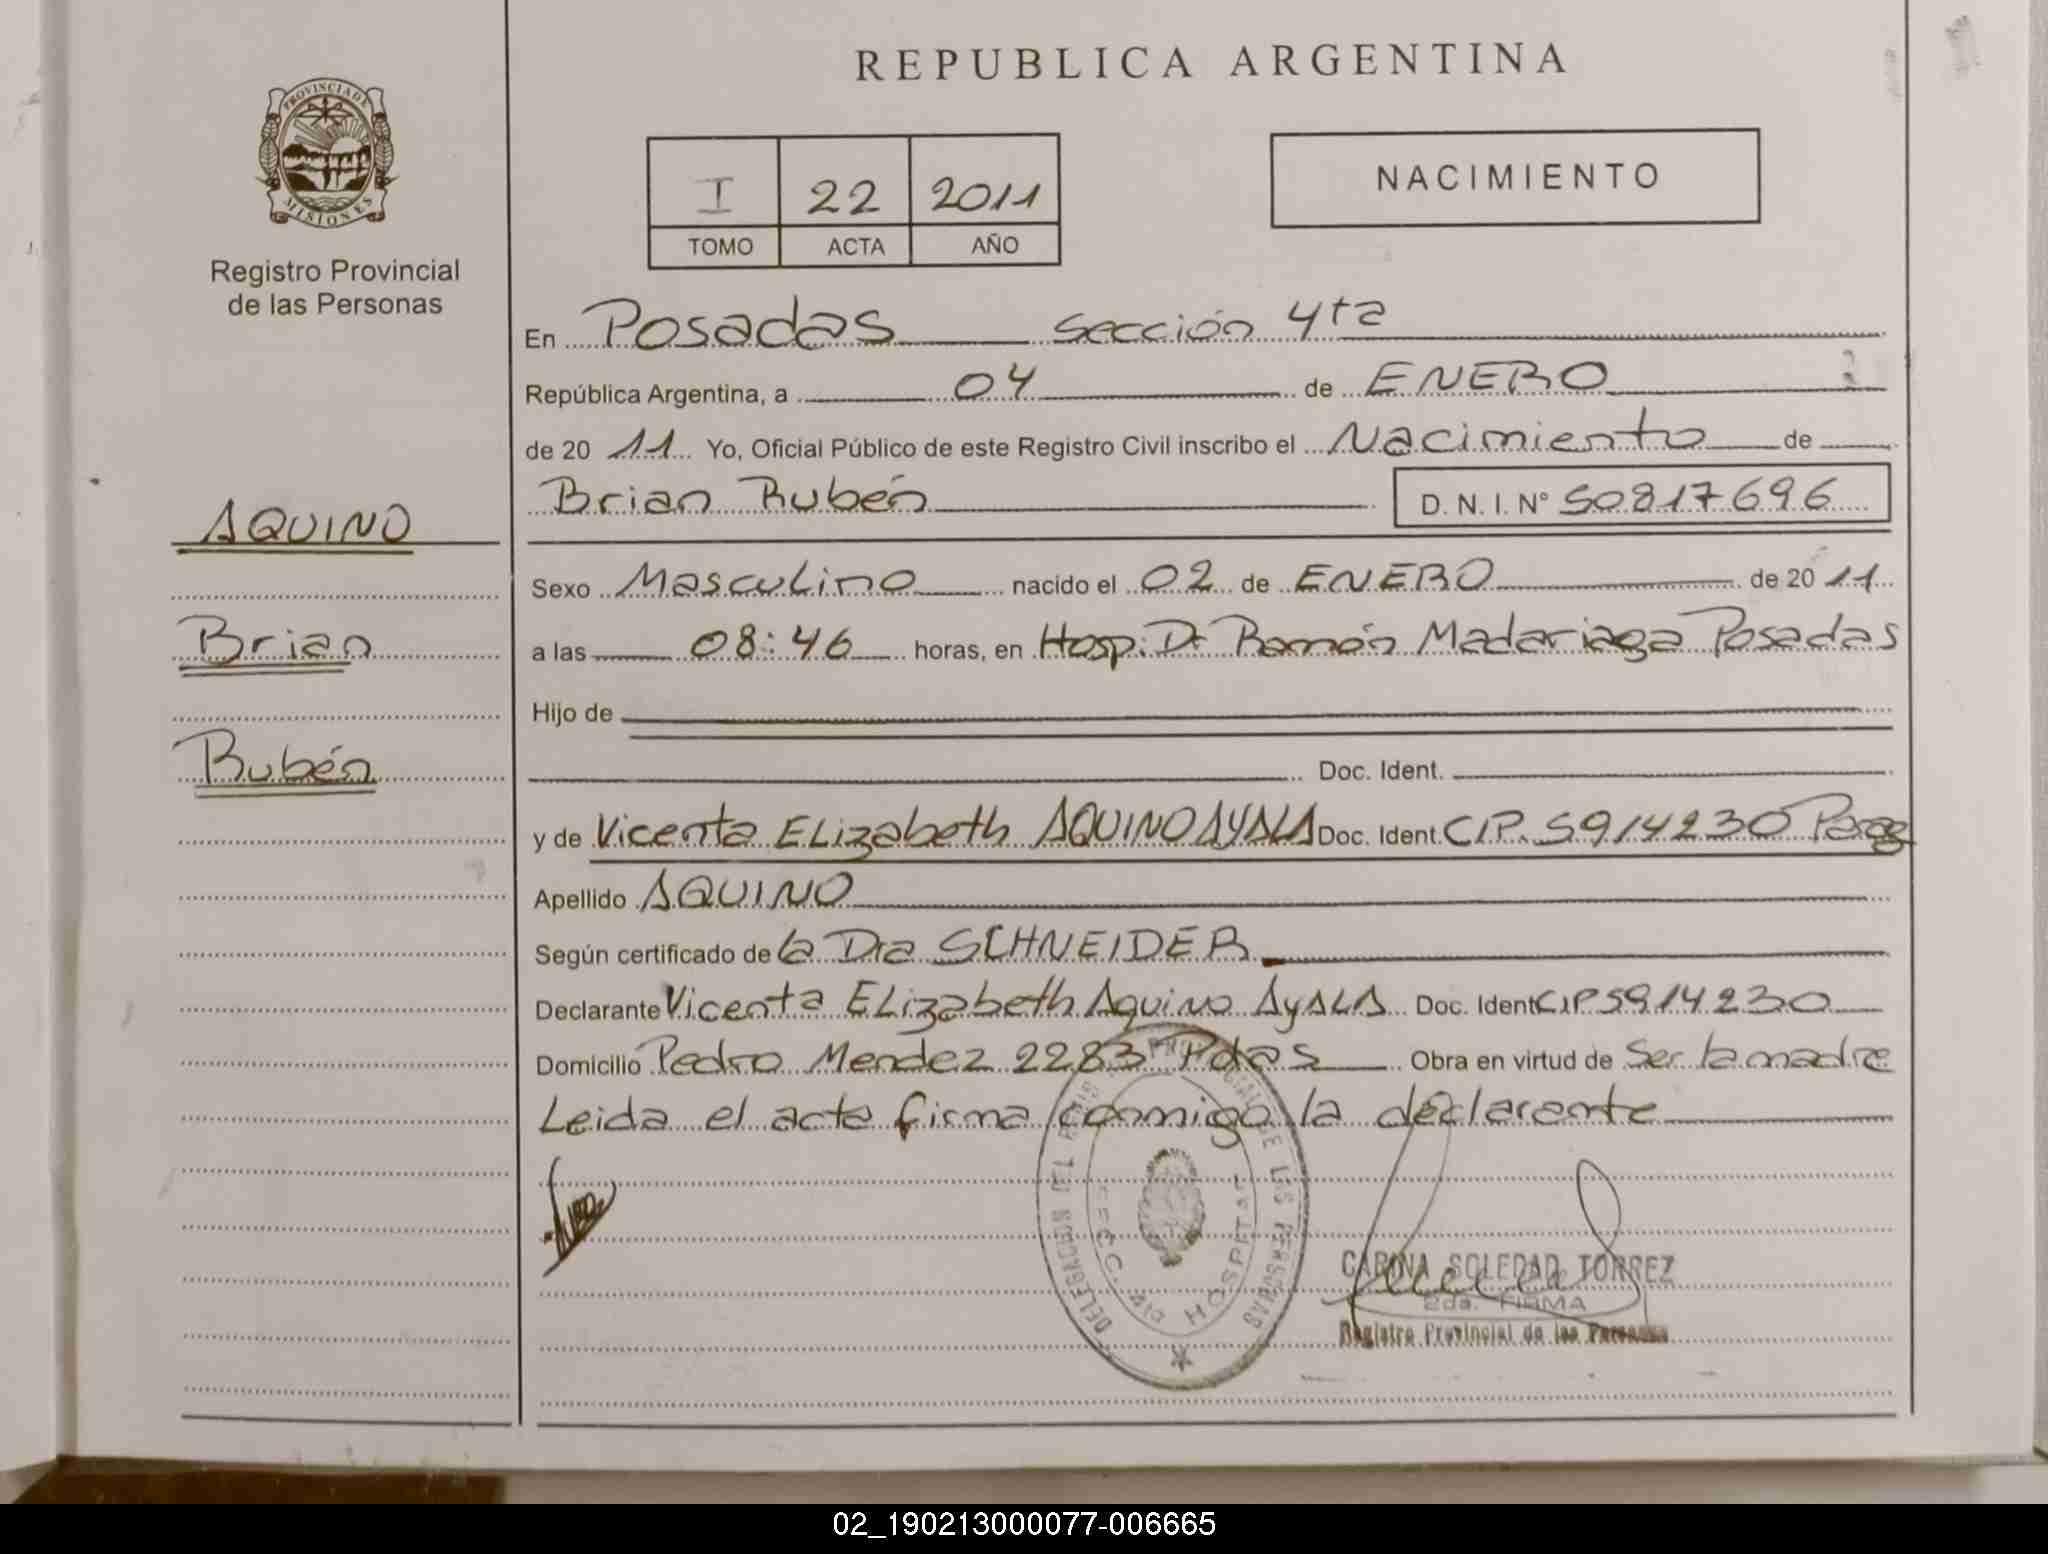 REPUBLICA ARGENTINA
PROVINCIA DE MISIONES
Registro Provincial
de las Personas
I 22 2011
TOMO ACTA AÑO
NACIMIENTO
En Posadas Sección 4ta
República Argentina, a 04 de ENERO
de 20 11 Yo, Oficial Público de este Registro Civil inscribo el Nacimiento de
Brian Rubén D. N. I. N° 50817696
AQUINO
Brian
Rubén
Sexo Masculino nacido el 02 de ENERO de 20 11
a las 08:46 horas, en Hosp. Dr Ramón Madariaga Posadas
Hijo de
Doc. Ident.
y de Vicenta ELizabeth AQUINO AYALA Doc. Ident. CIP. 5914230 Parag
Apellido AQUINO
Según certificado de la Dra SCHNEIDER
Declarante Vicenta ELizabeth Aquino AyALA Doc. Ident CIP 5914230
Domicilio Pedro Mendez 2283 Pdas Obra en virtud de Ser la madre
Leida el acta firma conmigo la declarante
DELEGACION DEL REGISTRO PROVINCIAL DE LAS PERSONAS
SECC. 4ta HOSPITAL
CARINA SOLEDAD TORREZ
2da. FIRMA
Registro Provincial de las Personas
02_190213000077-006665